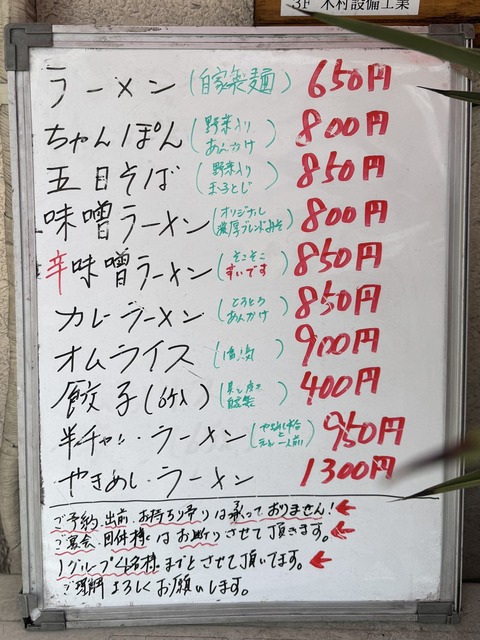 3F 木村設備工業
ラーメン (自家製麺) 650円
ちゃんぽん (野菜入り あんかけ) 800円
五目そば (野菜入り 玉子とじ) 850円
味噌ラーメン (オリジナル 濃厚ブレンドみそ) 800円
辛味噌ラーメン (そこそこ 辛いです) 850円
カレーラーメン (とろとろ あんかけ) 850円
オムライス 900円
餃子 (6ケ入) 400円
半チャン・ラーメン 950円
やきめし・ラーメン 1300円
ご予約、出前、お持ち帰りは承っておりません!←
ご宴会、団体様はお断りさせて頂きます。←
1グループ4名様までとさせて頂いてます。←
ご理解よろしくお願いします。